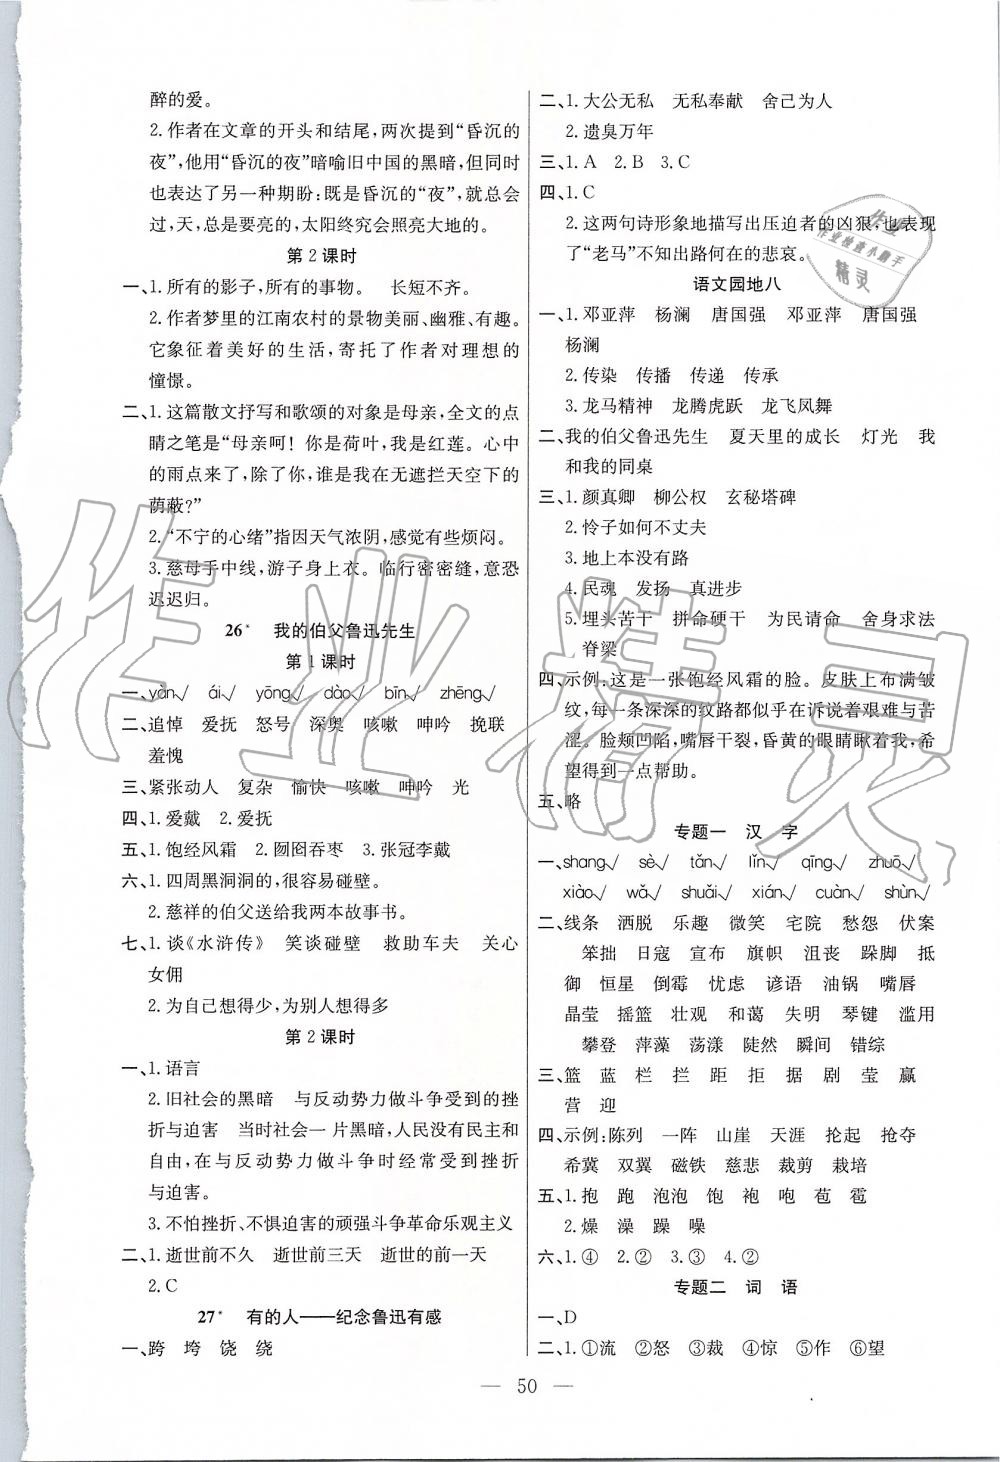 醉的爱。
2. 作者在文章的开头和结尾,两次提到“昏沉的
夜”,他用“昏沉的夜”暗喻旧中国的黑暗,但同时
也表达了另一种期盼:既是昏沉的“夜”,就总会
过,天,总是要亮的,太阳终究会照亮大地的。
第2课时
一、1. 所有的影子,所有的事物。 长短不齐。
2. 作者梦里的江南农村的景物美丽、幽雅、有趣。
它象征着美好的生活,寄托了作者对理想的
憧憬。
二、1. 这篇散文抒写和歌颂的对象是母亲,全文的点
睛之笔是“母亲呵! 你是荷叶,我是红莲。心中
的雨点来了,除了你,谁是我在无遮拦天空下的
荫蔽?”
2. “不宁的心绪”指因天气浓阴,感觉有些烦闷。
3. 慈母手中线,游子身上衣。临行密密缝,意恐
迟迟归。
26* 我的伯父鲁迅先生
第1课时
一、yàn√ ái√ yōng√ dào√ bīn√ zhēng√
二、追悼 爱抚 怒号 深奥 咳嗽 呻吟 挽联
羞愧
三、紧张动人 复杂 愉快 咳嗽 呻吟 光
四、1. 爱戴 2. 爱抚
五、1. 饱经风霜 2. 囫囵吞枣 3. 张冠李戴
六、1. 四周黑洞洞的,很容易碰壁。
2. 慈祥的伯父送给我两本故事书。
七、1. 谈《水浒传》 笑谈碰壁 救助车夫 关心
女佣
2. 为自己想得少,为别人想得多
第2课时
一、1. 语言
2. 旧社会的黑暗 与反动势力做斗争受到的挫
折与迫害 当时社会一片黑暗,人民没有民主和
自由,在与反动势力做斗争时经常受到挫折
与迫害。
3. 不怕挫折、不惧迫害的顽强斗争革命乐观主义
二、1. 逝世前不久 逝世前三天 逝世的前一天
2. C
27* 有的人——纪念鲁迅有感
一、跨 垮 饶 绕
二、1. 大公无私 无私奉献 舍己为人
2. 遗臭万年
三、1. A 2. B 3. C
四、1. C
2. 这两句诗形象地描写出压迫者的凶狠,也表现
了“老马”不知出路何在的悲哀。
语文园地八
一、1. 邓亚萍 杨澜 唐国强 邓亚萍 唐国强
杨澜
2. 传染 传播 传递 传承
3. 龙马精神 龙腾虎跃 龙飞凤舞
二、我的伯父鲁迅先生 夏天里的成长 灯光 我
和我的同桌
三、1. 颜真卿 柳公权 玄秘塔碑
2. 怜子如何不丈夫
3. 地上本没有路
4. 民魂 发扬 真进步
5. 埋头苦干 拼命硬干 为民请命 舍身求法
脊梁
四、示例:这是一张饱经风霜的脸。皮肤上布满皱
纹,每一条深深的纹路都似乎在诉说着艰难与苦
涩。脸颊凹陷,嘴唇干裂,昏黄的眼睛瞅着我,希
望得到一点帮助。
五、略
专题一 汉 字
一、shang√ sè√ tǎn√ lǐn√ qīng√ zhuō√
xiào√ wǎ√ shuǎi√ xián√ cuàn√ shùn√
二、线条 洒脱 乐趣 微笑 宅院 愁怨 伏案
笨拙 日寇 宣布 旗帜 沮丧 跺脚 抵
御 恒星 倒霉 忧虑 谚语 油锅 嘴唇
晶莹 摇篮 壮观 和蔼 失明 琴键 滥用
攀登 萍藻 荡漾 陡然 瞬间 错综
三、篮 蓝 栏 拦 距 拒 据 剧 莹 赢
营 迎
四、示例:陈列 一阵 山崖 天涯 抡起 抢夺
希冀 双翼 磁铁 慈悲 裁剪 栽培
五、1. 抱 跑 泡泡 饱 袍 咆 苞 雹
2. 燥 澡 躁 噪
六、1. ④ 2. ② 3. ③ 4. ②
专题二 词 语
一、D
二、1. ①流 ②怒 ③裁 ④惊 ⑤作 ⑥望
— 50 —
作业
作业检查小助手
精灵
作业精灵